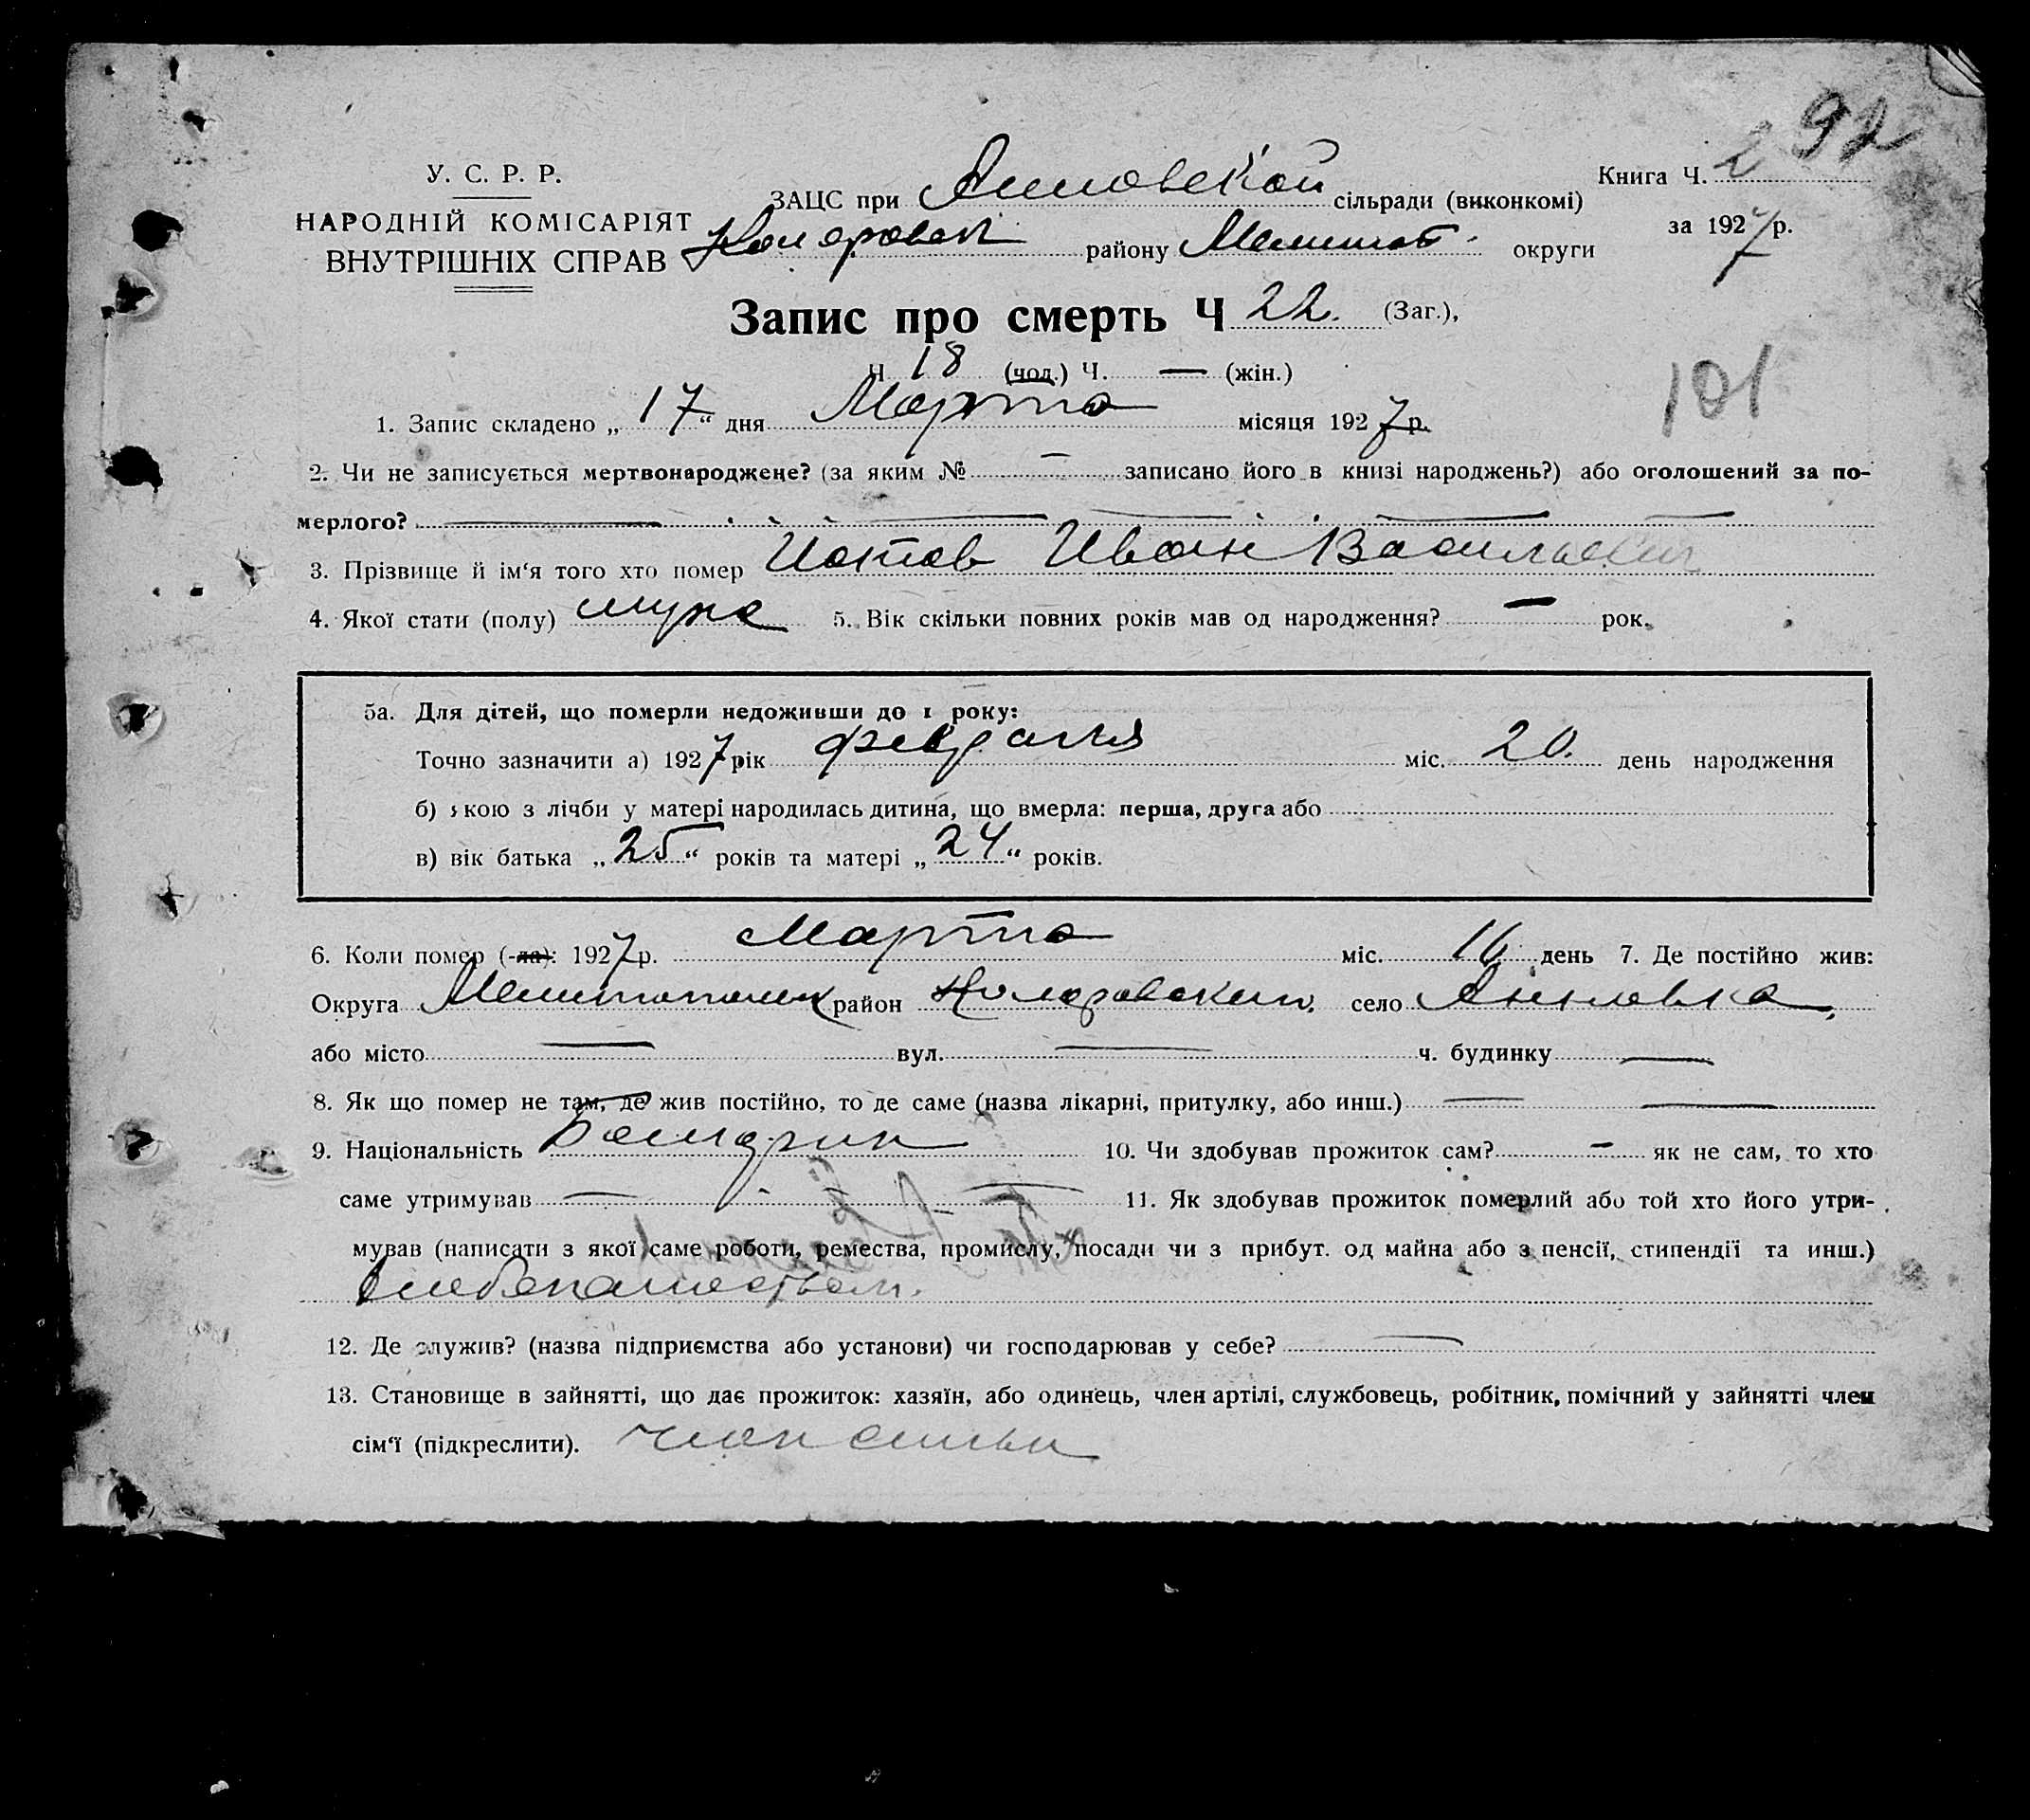 292
У. С. Р. Р.
НАРОДНІЙ КОМІСАРІЯТ
ВНУТРІШНІХ СПРАВ
ЗАЦС при Анновской сільради (виконкомі)
Коларовск району Мелитоп. округи
Книга Ч. 2
за 1927 р.
Запис про смерть Ч 22. (Заг.),
Ч 18 (чол.) Ч. — (жін.)
101
1. Запис складено „17“ дня Марта місяця 1927 р.
2. Чи не записується мертвонароджене? (за яким № — записано його в книзі народжень?) або оголошений за по-
мерлого? —
3. Прізвище й ім‘я того хто помер Иотов Иван Васильевич
4. Якої стати (полу) муж 5. Вік скільки повних років мав од народження? — рок.
5а. Для дітей, що померли недоживши до 1 року:
Точно зазначити а) 1927 рік февраля міс. 20. день народження
б) якою з лічби у матері народилась дитина, що вмерла: перша, друга або
в) вік батька „25“ років та матері „24“ років.
6. Коли помер (-ла): 1927 р. Марта міс. 16 день 7. Де постійно жив:
Округа Мелитопольск район Коларовский, село Анновка,
або місто — вул. — ч. будинку —
8. Як що помер не там, де жив постійно, то де саме (назва лікарні, притулку, або инш.) — —
9. Національність Болгарин 10. Чи здобував прожиток сам? — як не сам, то хто
саме утримував — 11. Як здобував прожиток померлий або той хто його утри-
мував (написати з якої саме роботи, ремества, промислу, посади чи з прибут. од майна або з пенсії, стипендії та инш.)
хлебопашеством.
12. Де служив? (назва підприємства або установи) чи господарював у себе? —
13. Становище в зайнятті, що дає прожиток: хазяїн, або одинець, член артілі, службовець, робітник, помічний у зайнятті член
сім‘ї (підкреслити). член семьи